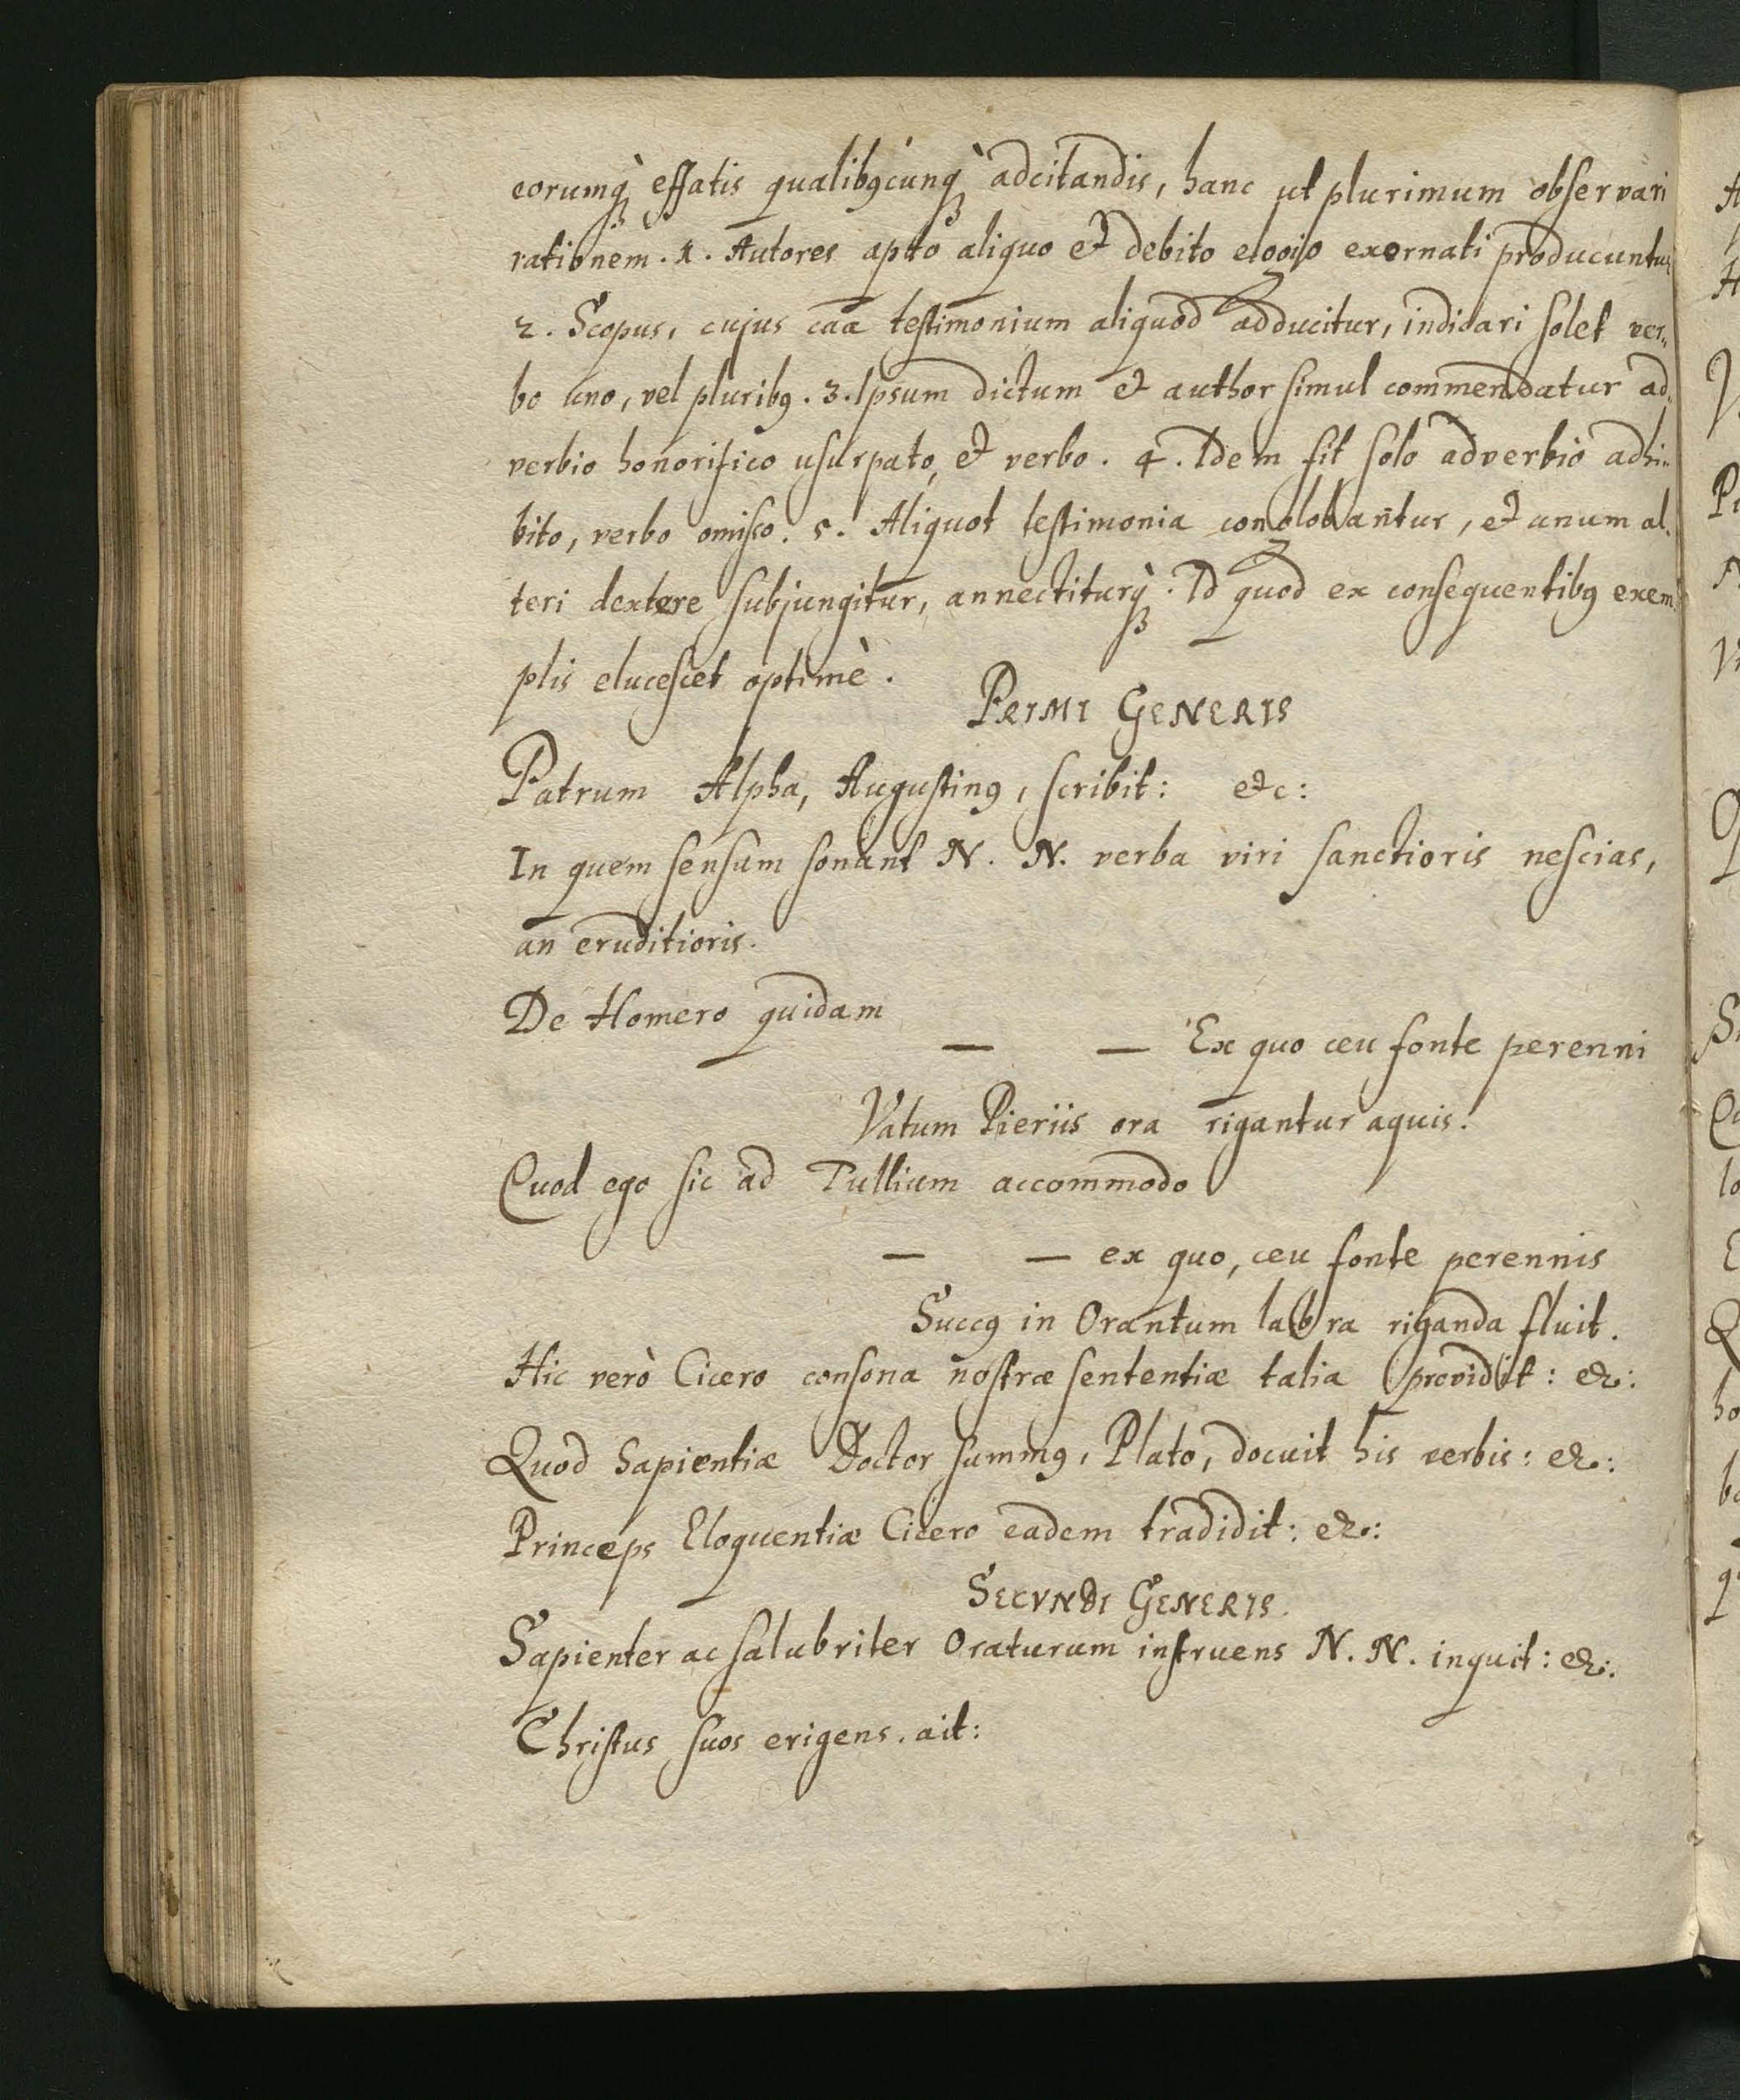 eorumq̀ꝫ effatis qualibꝯcunq̀ꝫ adcitandis, hanc ut plurimum observari
rationem. 1. Autores apto aliquo et debito elogio exornati producuntur
2. Scopus, cujus caã testimonium aliquod adducitur, indidari solet ver„
bo uno, vel pluribꝯ. 3. Ipsum dictum et author simul commendatur ad„
verbio honorifico usurpato, et verbo. 4. Idem fit solo adverbio adhi„
bito, verbo omisso. 5. Aliquot testimonia conglobantur, et unum al„
teri dextere subjungitur, annectiturq̀ꝫ. Id quod ex consequentibꝯ exem
plis elucescet optimè.
PRIMI GENERIS
Patrum Alpha, Augustinꝯ, scribit: etc:
In quem sensum sonant N. N. verba viri sanctioris nescias,
an eruditioris.
De Homero quidam
— — Ex quo ceu fonte perenni
Vatum Pieriis ora rigantur aquis.
Quod ego sic ad Tullium accommodo
— — ex quo, ceu fonte perennis
Succꝯ in Orantum labra riganda fluit.
Hic verò Cicero consona nostræ sententiæ talia providit: &c:
Quod Sapientiæ Doctor summꝯ, Plato, docuit his verbis: &c:
Princeps Eloquentiæ Cicero eadem tradidit: &c:
SECVNDI GENERIS.
Sapienter ac salubriter Oraturum instruens N. N. inquit: &c:
Christus suos erigens. ait: